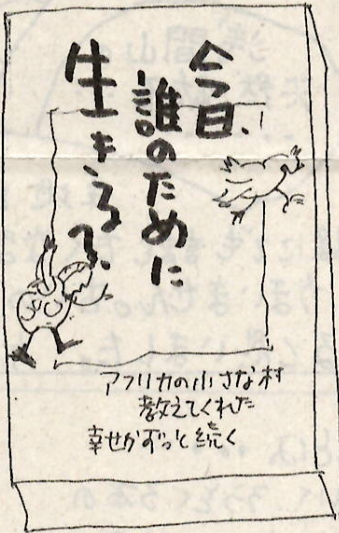 今日、
誰のために
生きる？
アフリカの小さな村
教えてくれた
幸せがずっと続く